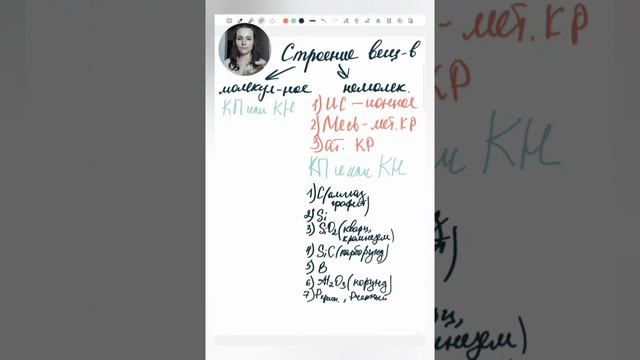 Строение вещ-в
молекул-ное
немолек.
КП или КН
1) ИС – ионное
2) Me св – мет. КР
3) ат. КР
КП и или КН
1) C (алмаз,
графит)
2) Si
3) SiO2 (кварц,
кремнезем)
4) SiC (карборунд)
5) B
6) Al2O3 (корунд)
7) Pкрасн., Pчерный